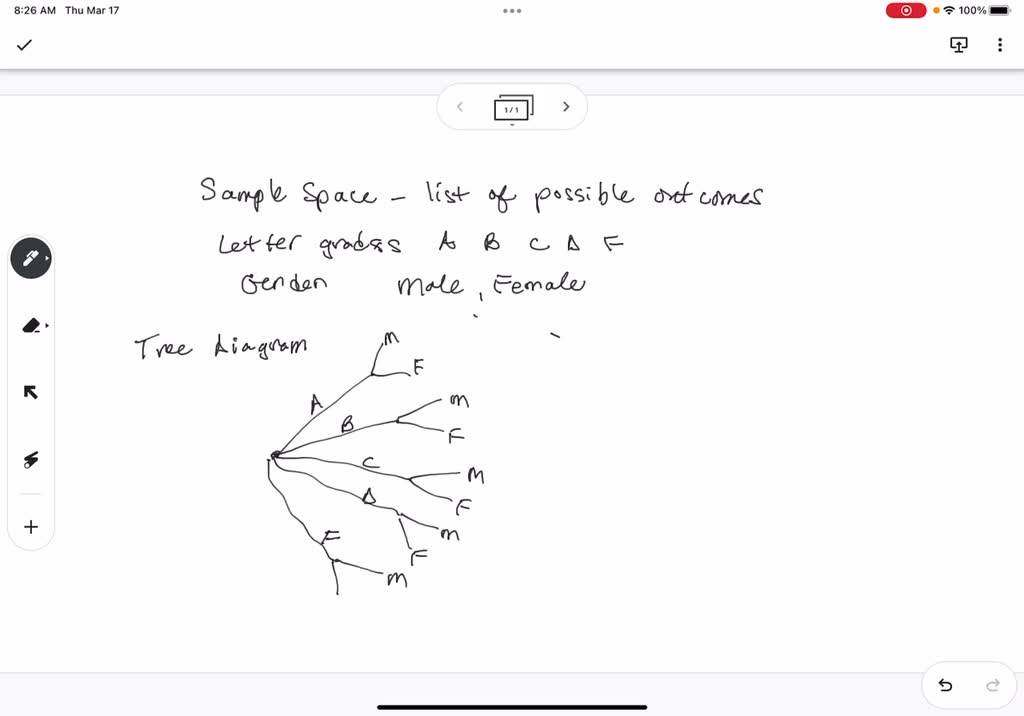 8:26 AM Thu Mar 17
100%
1/1
Sample Space - list of possible outcomes
Letter grades A B C D F
Gender Male, Female
Tree Diagram
M
F
A
M
B
F
C
M
D
F
M
F
F
M